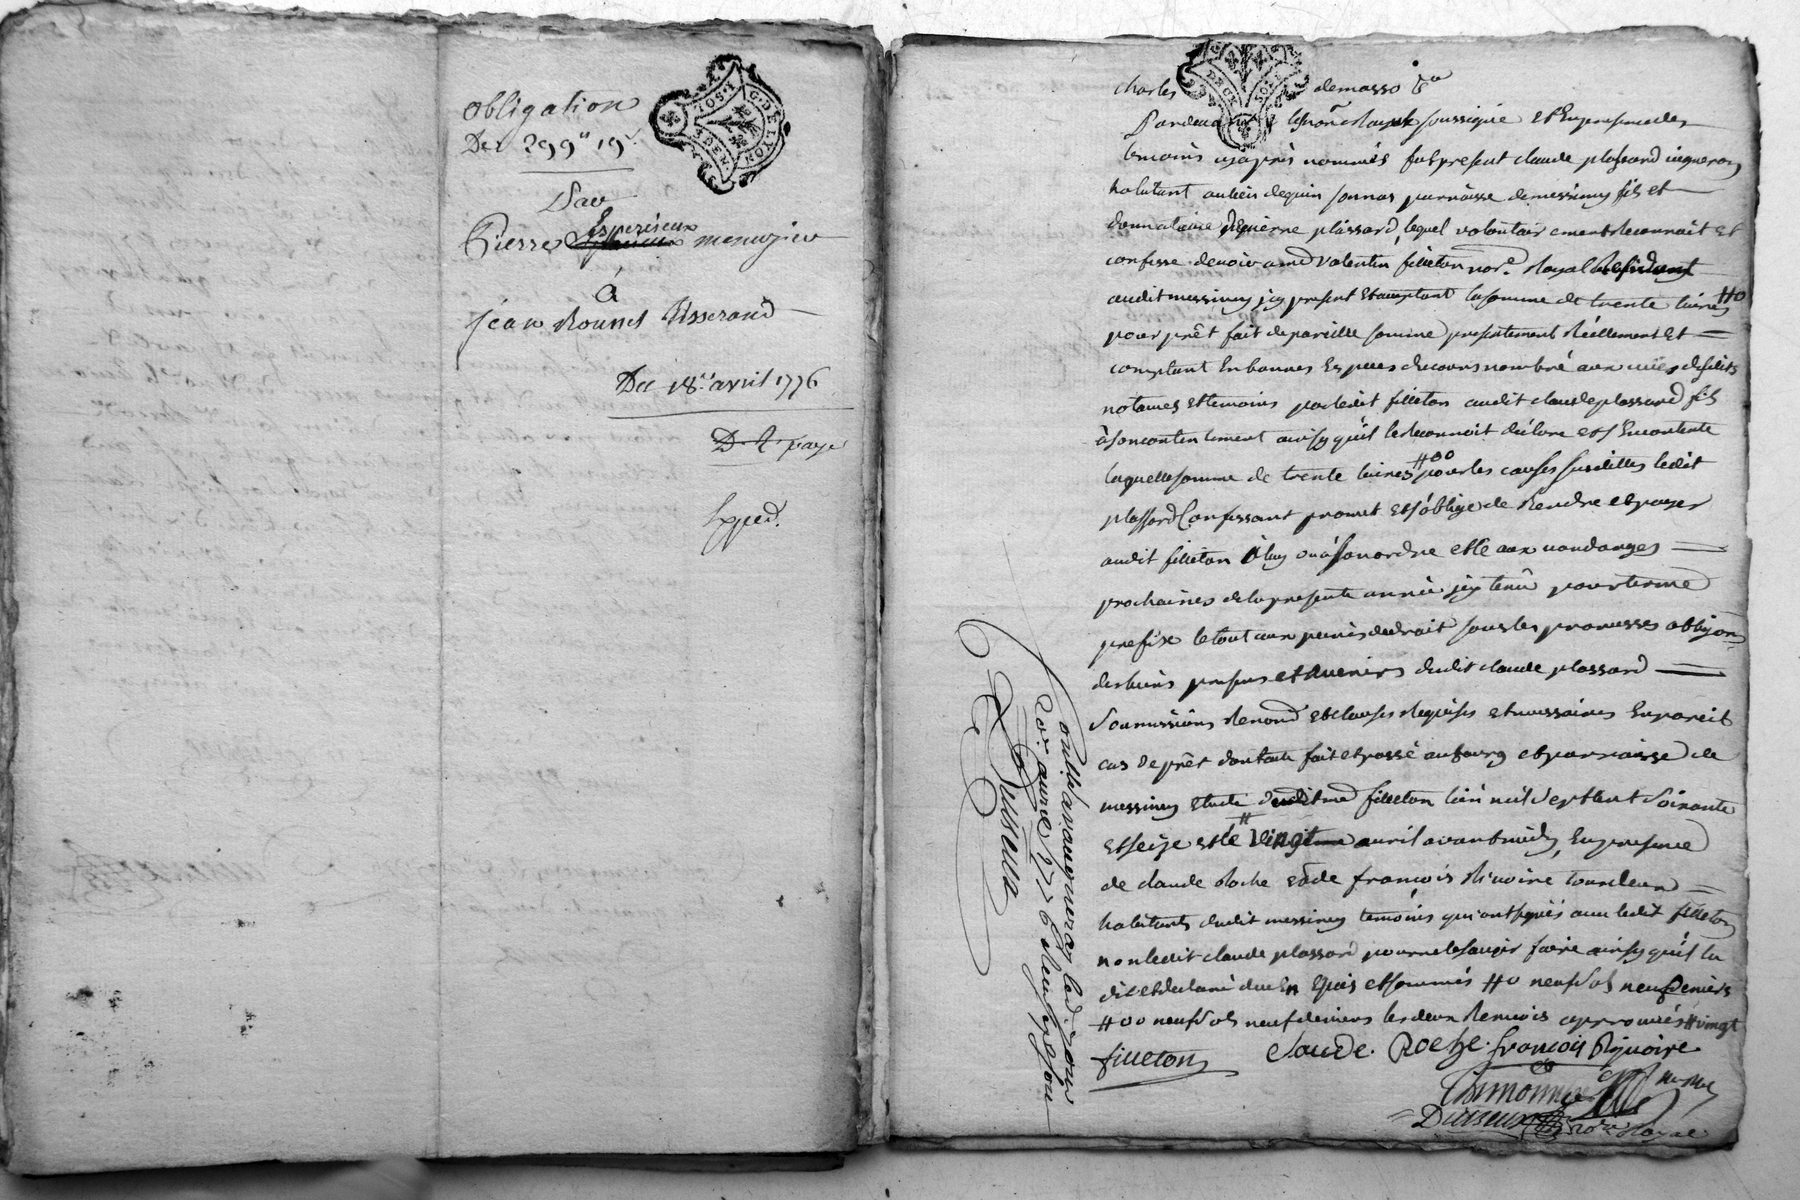 obligation
De 299ᵗᵗ 19ˢ
Par
Pierre Esperieux menuzier
à
jean Rousset tisserand
Du 18ᵉ avril 1776
D. t. paye
Exped.
G. DE LYON
charles demasso
Pardevant le no.ʳᵉ Royal soussigné et En presence des
temoins cyaprès nommés fut present claude plassard vigneron
habitant au lieu de quinsonnas parroisse de messimy fils et
donnataire de pierre plassard, lequel volontairement Reconnait et
confesse devoir a me valentin filleton no.ʳᵉ Royal Resident
audit messimy icy present et acceptant la somme de trente livres #0
pour prêt fait de pareille somme presentement Réellement et
comptant En bonnes Especes de cours nombré aux vües desdits
notaires et temoins par ledit filleton audit claude plassard fils
à son contentement ainsy qu'il le Reconnoit déclare et s'En contente
#00
laquelle somme de trente livres pour les causes susdittes ledit
plassard Confessant promet et s'oblige de Rendre et payer
audit filleton à luy ou à son ordre et ce aux vandanges
prochaines de la presente année icy tenû pour terme
prefixe le tout aux peines de droit sous les promesses obligaon
des biens presens et avenirs dudit claude plassard
Soumissions Renond et clauses Requises et necessaires En pareil
cas de prêt dont acte fait et passé au bourg et parroisse de
messimy etude dudit me filleton l'an mil sept cent Soixante
#
et seize et le vingt avril avant midy, En presence
de claude Roche et de francois Rivoire tourdeur
habitants dudit messimy temoins qui ont signés avec ledit filleton
non ledit claude plassard pour ne le savoir faire ainsy qu'il la
dit et declaré de ce Enquis et sommés #0 neuf sols neuf deniers
#00 neuf sols neuf deniers les deux Renvois approuvés # vingt
filleton Claude Roche francois Rivoire
Duiseux no.ʳᵉ Royal
Controllé a vaugneray led. jour
20ᵉ avril 1776 Reçu sept sous
Duiseux